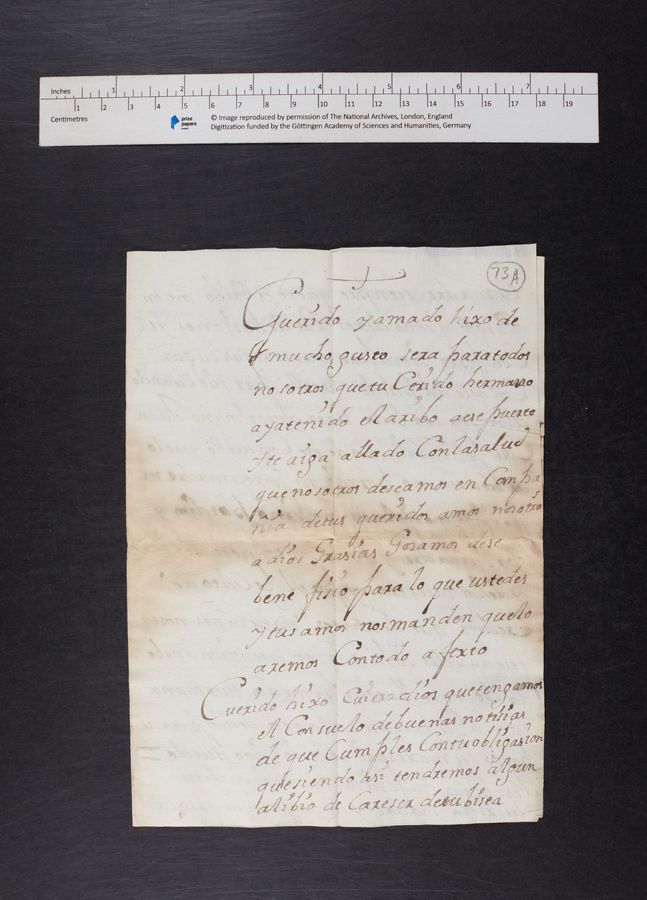 Inches
1 2 3 4 5 6 7
1 2 3 4 5 6 7 8 9 10 11 12 13 14 15 16 17 18 19
Centimetres
prize papers
© Image reproduced by permission of The National Archives, London, England
Digitization funded by the Göttingen Academy of Sciences and Humanities, Germany
73A
Querido yamado hixo de
mucho gusto sera paratodos
nosotros quetu Cerido hermano
ayatenido el aribo aese puerto
yte aiga allado Conlasalud
que nosotros deseamos en Compa
nia detus queridos amos nosotros
a dios Grasias Gosamos dese
bene fisio para lo que ustedes
ytus amos nosmanden quelo
aremos Contodo a fexto
Cuerido hixo Cuieradios quetengamos
el Consuelo debuenas notisias
de que Cumples Contuobligasion
quesiendo asi tendremos algun
alibio de Careser detubisea